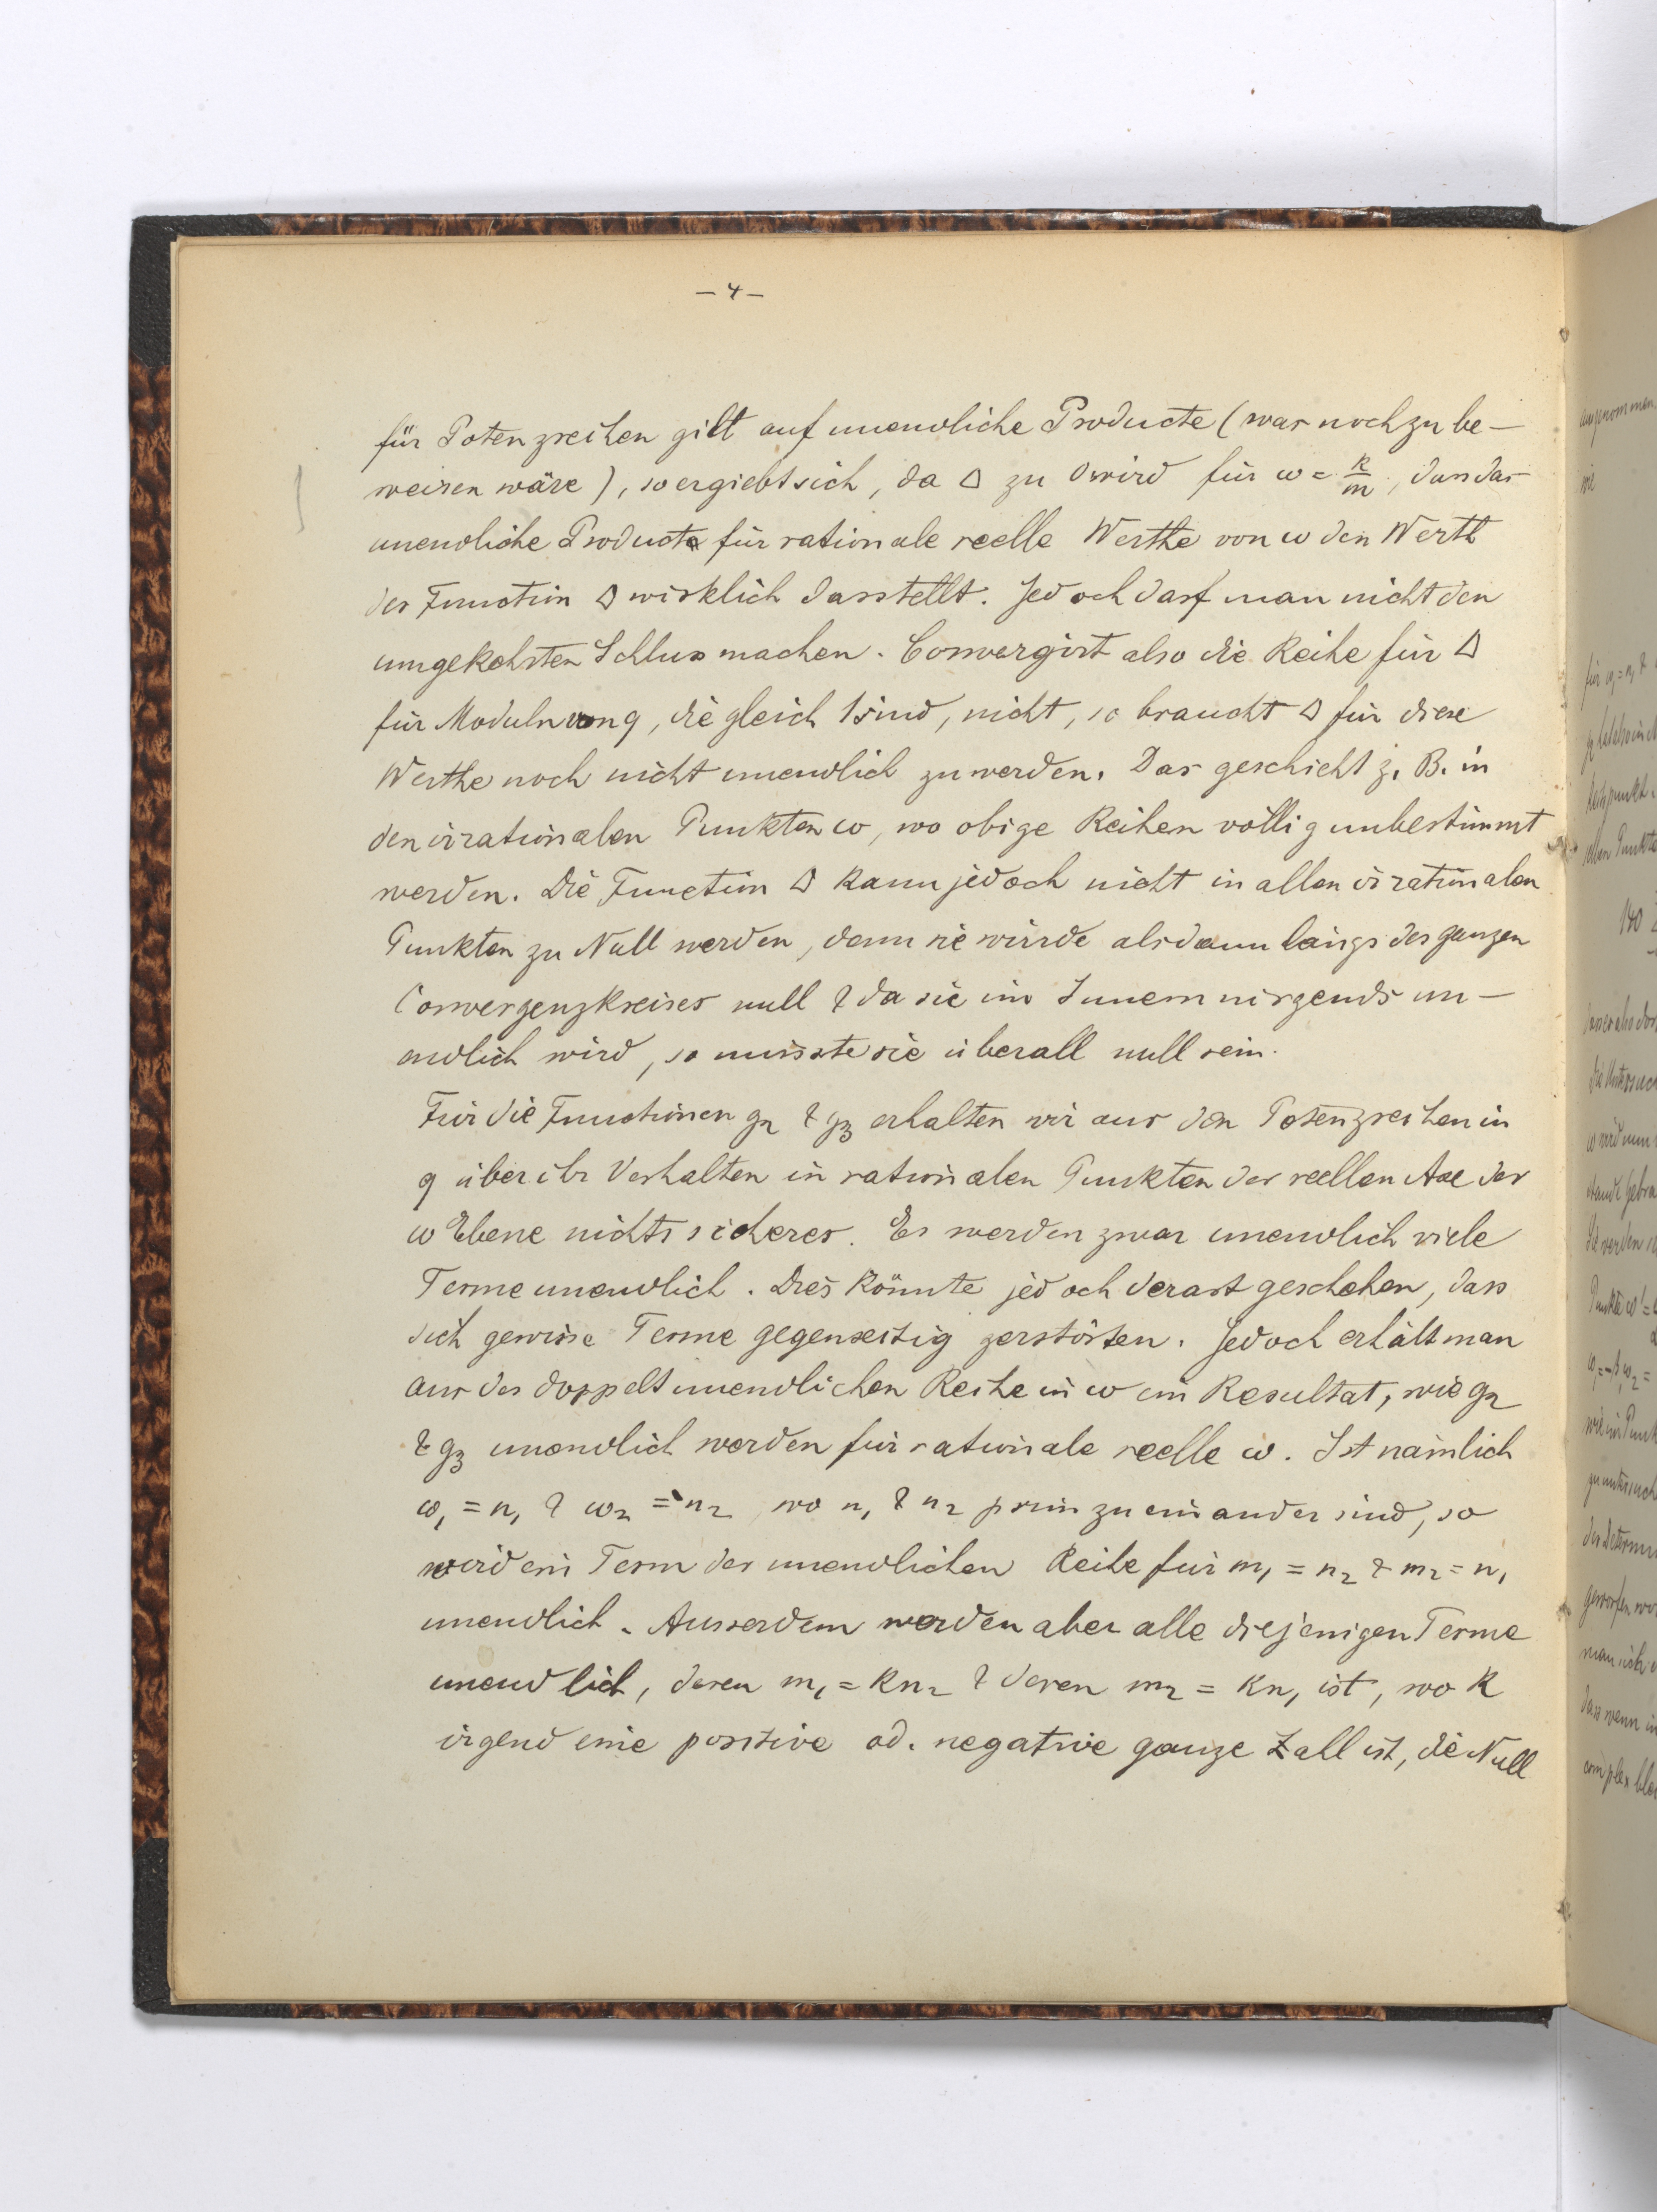 – 4 –
für Potenzreihen gilt auf unendliche Producte (was noch zu be–
weisen wäre), so ergiebt sich, da Δ zu 0 wird für ω = k/m, dass das
unendliche Product für rationale reelle Werthe von ω den Werth
der Function Δ wirklich darstellt. Jedoch darf man nicht den
umgekehrten Schluss machen. Convergirt also die Reihe für Δ
für Moduln von q, die gleich 1 sind, nicht, so braucht Δ für diese
Werthe noch nicht unendlich zu werden. Das geschieht z. B. in
den irrationalen Punkten ω, wo obige Reihen völlig unbestimmt
werden. Die Function Δ kann jedoch nicht in allen irrationalen
Punkten zu Null werden, denn sie würde alsdann längs des ganzen
Convergenzkreises null & da sie im Innern nirgends un–
endlich wird, so müsste sie überall null sein.
Für die Functionen g₂ & g₃ erhalten wir aus den Potenzreihen in
q über ihr Verhalten in rationalen Punkten der reellen Axe der
ω Ebene nichts sicheres. Es werden zwar unendlich viele
Terme unendlich. Dies könnte jedoch derart geschehen, dass
sich gewisse Terme gegenseitig zerstörten. Jedoch erhält man
aus der doppelt unendlichen Reihe in ω ein Resultat, wie g₂
& g₃ unendlich werden für rationale reelle ω. Ist nämlich
ω₁ = n₁ & ω₂ = n₂, wo n₁ & n₂ prim zu einander sind, so
wird ein Term der unendlichen Reihe für m₁ = n₂ & m₂ = n₁
unendlich. Ausserdem werden aber alle diejenigen Terme
unendlich, deren m₁ = kn₂ & deren m₂ = kn₁ ist, wo k
irgend eine positive od. negative ganze Zahl ist, die Null